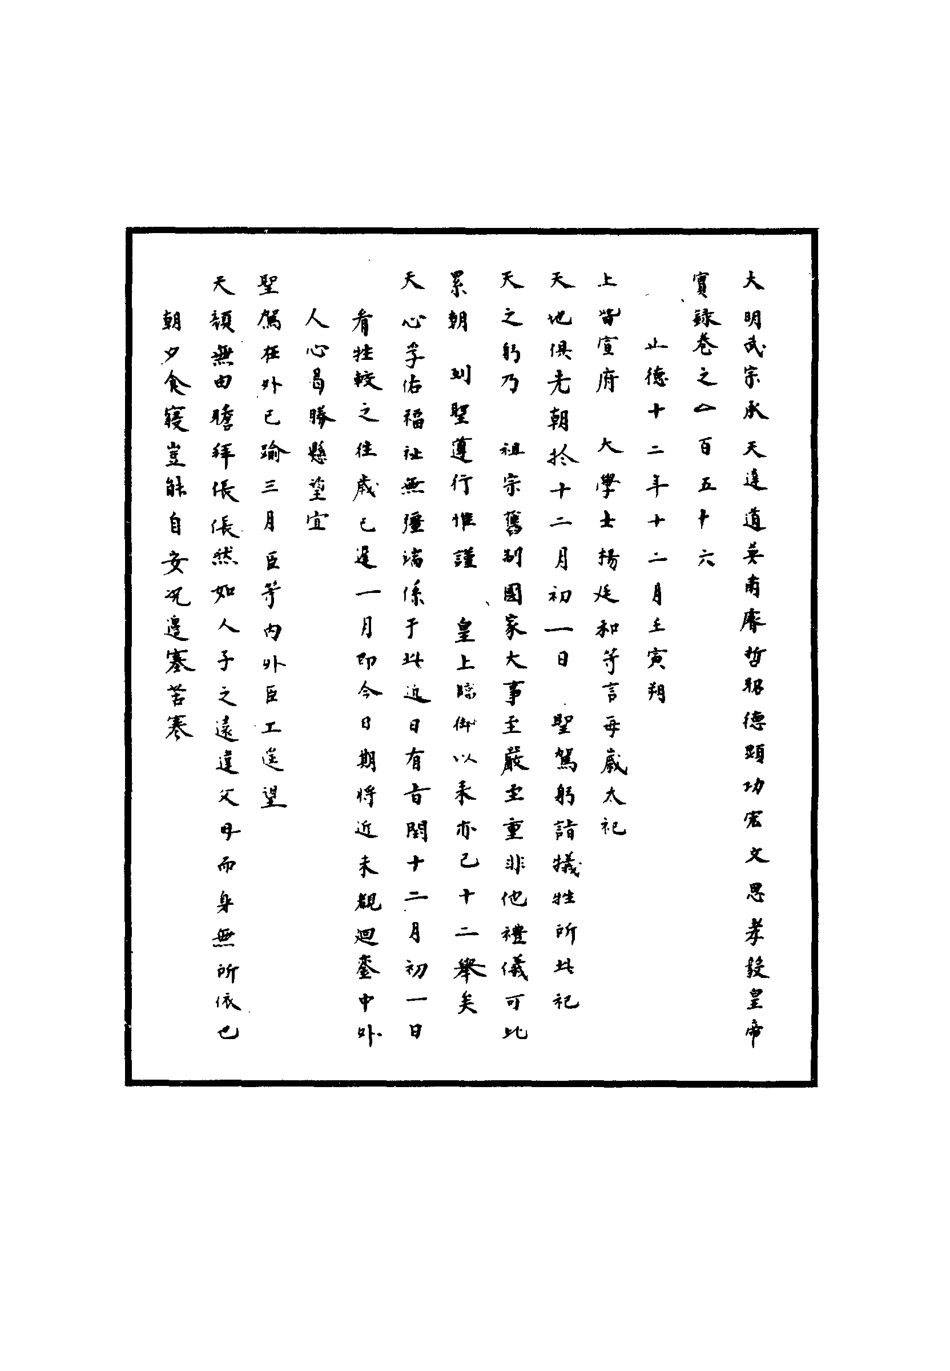 大明武宗承天達道英肅睿哲昭德顯功宏文思孝毅皇帝
實錄卷之一百五十六
正德十二年十二月壬寅朔
上嘗宣府 大學士楊廷和等言每歲太祀
天地俱先朝於十二月初一日 聖駕躬詣犧牲所此祀
天之躬乃 祖宗舊制國家大事至嚴至重非他禮儀可比
累朝 列聖遵行惟謹 皇上臨御以來亦已十二舉矣
天心孚佑福祉無疆端係于此近日有旨閏十二月初一日
看牲較之往歲已遲一月即今日期將近未覩迴鑾中外
人心曷勝懸望宜
聖駕在外已踰三月臣等內外臣工遙望
天顏無由瞻拜倀倀然如人子之遠違父母而身無所依也
朝夕食寢豈能自安況邊塞苦寒